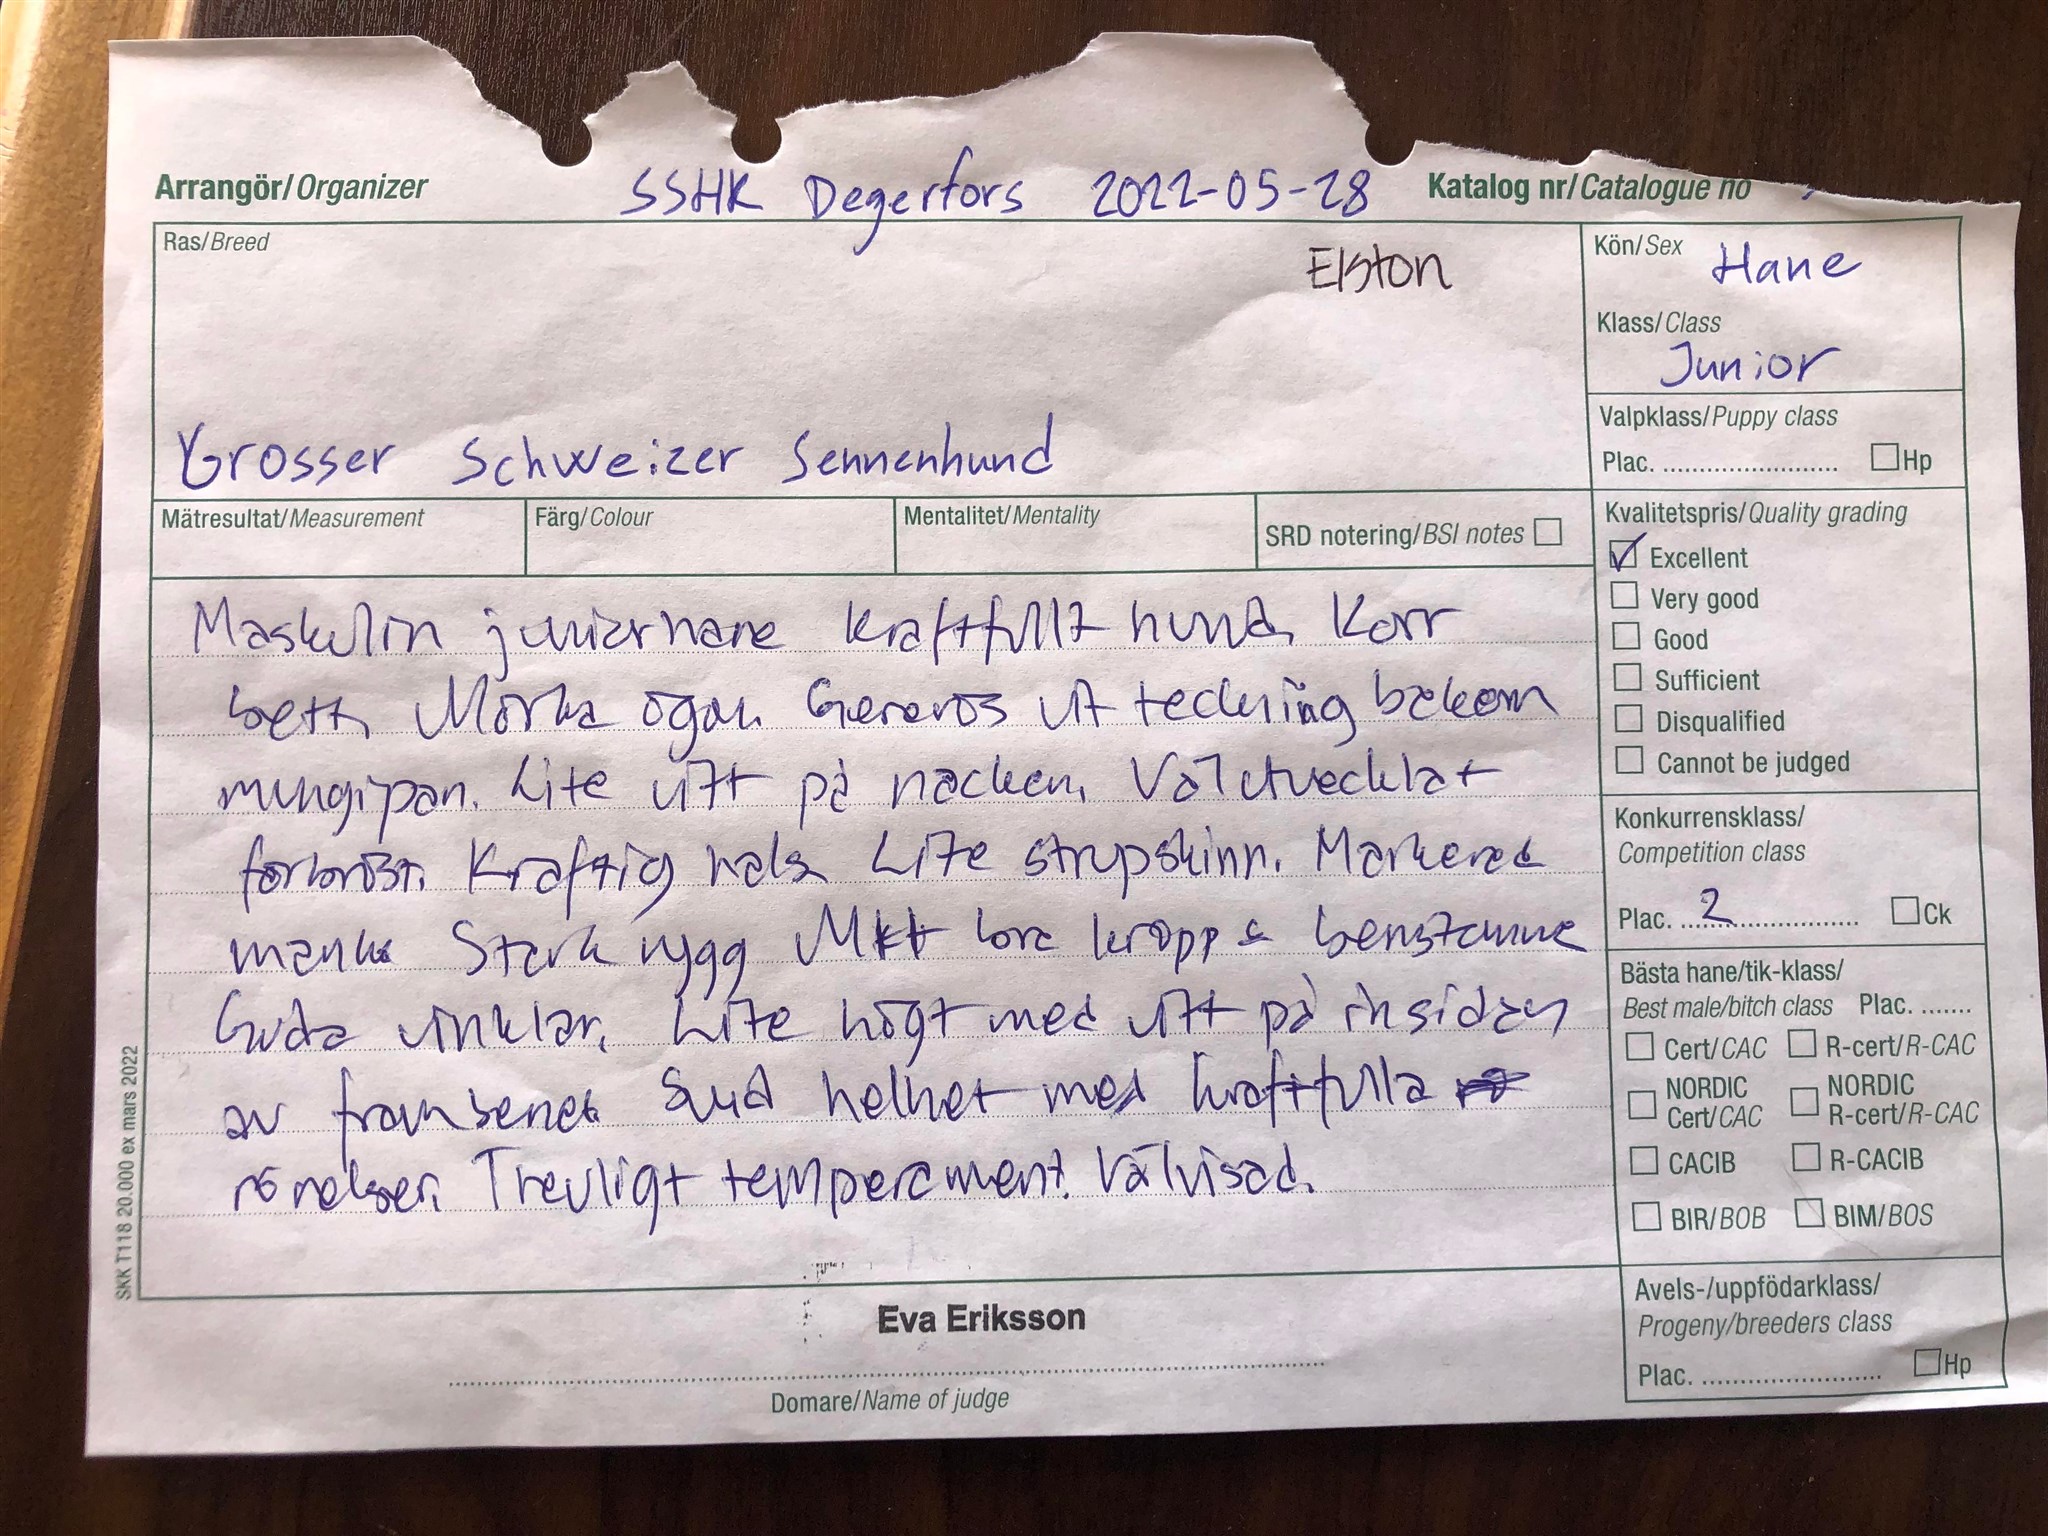 Arrangör/Organizer SSHK Degerfors 2022-05-28 Katalog nr/Catalogue no
Ras/Breed
Elston
Grosser Schweizer Sennenhund
Kön/Sex Hane
Klass/Class
Junior
Valpklass/Puppy class
Plac. ........................ Hp
Mätresultat/Measurement Färg/Colour Mentalitet/Mentality SRD notering/BSI notes
Kvalitetspris/Quality grading
Excellent
Very good
Good
Sufficient
Disqualified
Cannot be judged
Maskulin juniorhane kraftfullt hund. Korr
bett. Mörka ögon. Generös vit teckning bakom
mungipan. Lite vitt på nacken. Välutvecklat
förbröst. Kraftig hals. Lite strupskinn. Markerad
manke Stark rygg Mkt bra kropp & benstamme
Goda vinklar. Lite högt med vitt på insidan
av frambenet. Sund helhet med kraftfulla
rörelser. Trevligt temperament. Välvisad.
Konkurrensklass/
Competition class
Plac. 2 Ck
Bästa hane/tik-klass/
Best male/bitch class Plac. .......
Cert/CAC R-cert/R-CAC
NORDIC Cert/CAC NORDIC R-cert/R-CAC
CACIB R-CACIB
BIR/BOB BIM/BOS
Avels-/uppfödarklass/
Progeny/breeders class
Plac. ......................... Hp
Eva Eriksson
Domare/Name of judge
SKK T118 20.000 ex mars 2022